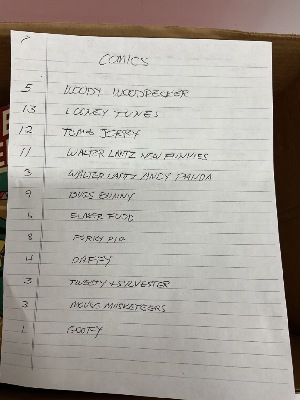 COMICS
5 WOODY WOODPECKER
13 LOONEY TUNES
12 TOM & JERRY
11 WALTER LANTZ NEW FUNNIES
3 WALTER LANTZ ANDY PANDA
9 BUGS BUNNY
6 ELMER FUDD
8 PORKY PIG
4 DAFFY
3 TWEETY & SYLVESTER
3 MOUSE MUSKETEERS
1 GOOFY